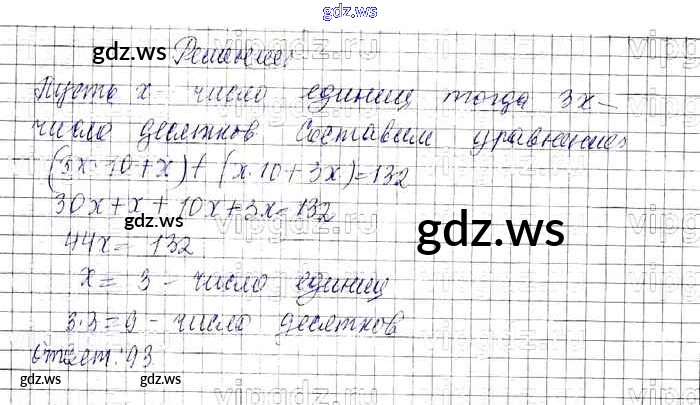 gdz.ws
gdz.ws Решение:
Пусть x - число единиц тогда 3x -
число десятков. Составим уравнение:
(3x·10+x)+(x·10+3x)=132
30x+x+10x+3x=132
gdz.ws
gdz.ws
44x=132
x=3 - число единиц
3·3=9 - число десятков
Ответ: 93
gdz.ws gdz.ws gdz.ws